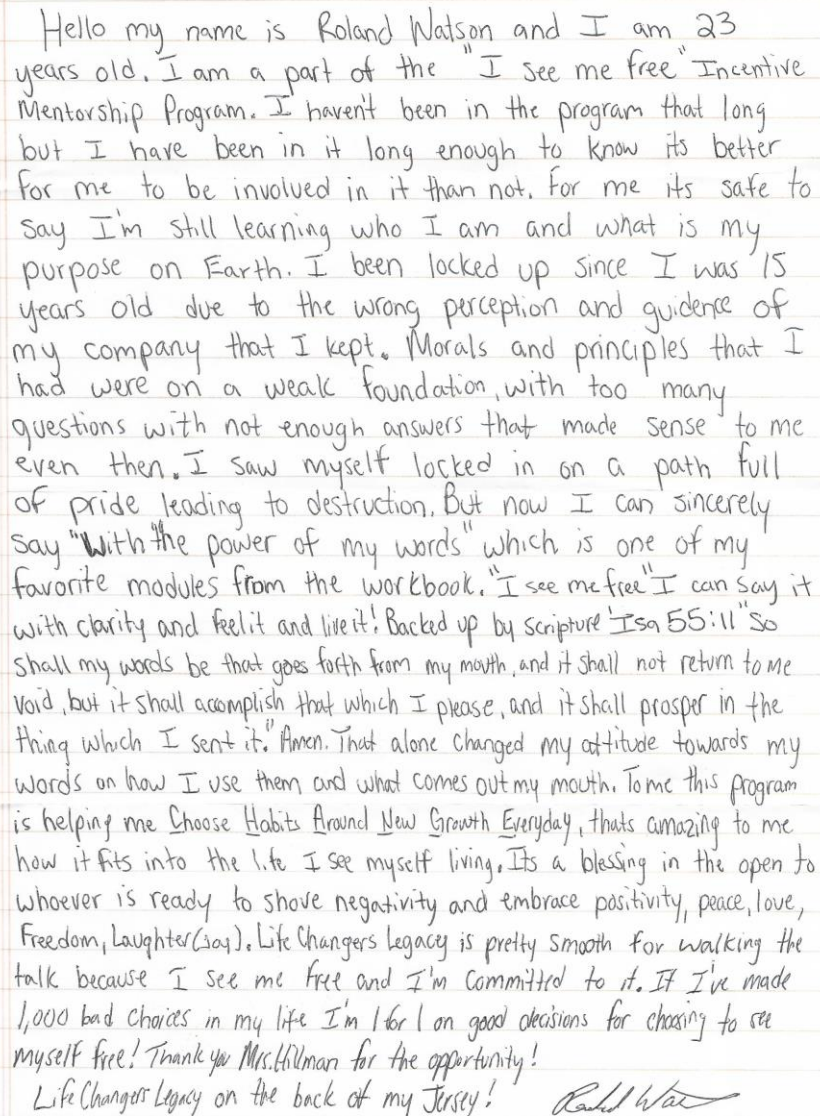 Hello my name is Roland Watson and I am 23
years old. I am a part of the "I see me free" Incentive
Mentorship Program. I haven't been in the program that long
but I have been in it long enough to know its better
for me to be involved in it than not. For me its safe to
say I'm still learning who I am and what is my
purpose on Earth. I been locked up since I was 15
years old due to the wrong perception and guidence of
my company that I kept. Morals and principles that I
had were on a weak foundation, with too many
questions with not enough answers that made sense to me
even then. I saw myself locked in on a path full
of pride leading to destruction. But now I can sincerely
say "With the power of my words" which is one of my
favorite modules from the workbook. "I see me free" I can say it
with clarity and feel it and live it! Backed up by scripture 'Isa 55:11 "So
shall my words be that goes forth from my mouth, and it shall not return to me
void, but it shall accomplish that which I please, and it shall prosper in the
thing which I sent it." Amen. That alone changed my attitude towards my
words on how I use them and what comes out my mouth. To me this program
is helping me Choose Habits Around New Growth Everyday, thats amazing to me
how it fits into the life I see myself living. Its a blessing in the open to
whoever is ready to shove negativity and embrace positivity, peace, love,
Freedom, Laughter (joy). Life Changers Legacy is pretty smooth for walking the
talk because I see me free and I'm committed to it. If I've made
1,000 bad choices in my life I'm 1 for 1 on good decisions for choosing to see
myself free! Thank you Mrs. Hillman for the opportunity!
Life Changers Legacy on the back of my Jersey!